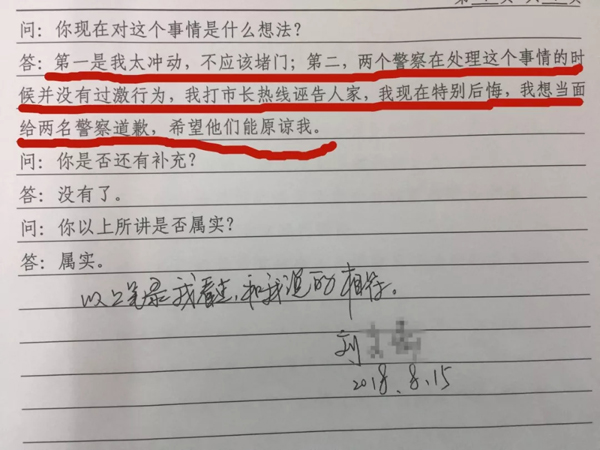 问：你现在对这个事情是什么想法？
答：第一是我太冲动，不应该堵门；第二，两个警察在处理这个事情的时
候并没有过激行为，我打市长热线诬告人家，我现在特别后悔，我想当面
给两名警察道歉，希望他们能原谅我。
问：你是否还有补充？
答：没有了。
问：你以上所讲是否属实？
答：属实。
以上笔录我看过，和我说的相符。
刘
2018.8.15